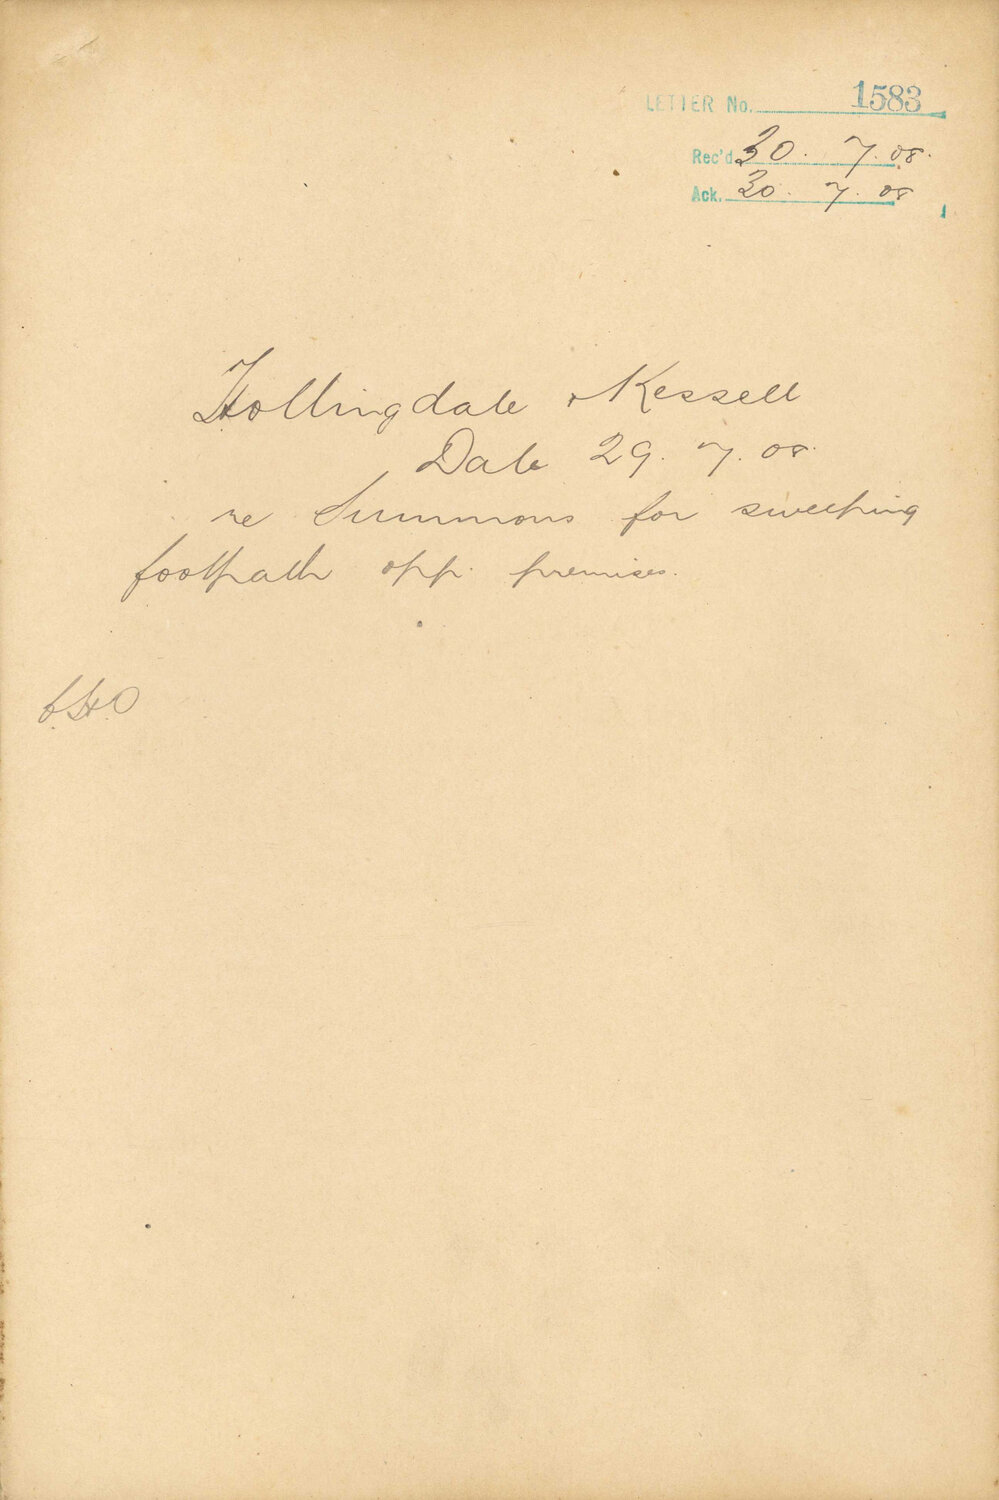 LETTER No. 1583
Rec'd 30. 7. 08.
Ack. 30. 7. 08
Hollingdale & Kessell
Date 29. 7. 08.
re Summons for sweeping
footpath opp. premises.